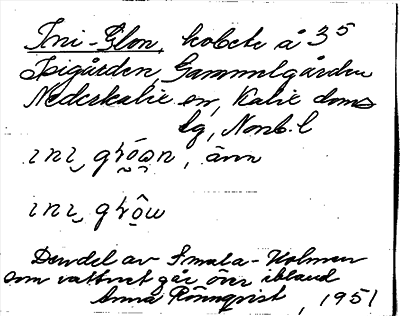 Ini-Glon, kobete å 35
Isigården, Gammelgården
Nederkalix sn, Kalix doms
lg, Norrb. l
ini,
ini,
Dendel av Smala-Holmen
som vattnet går över ibland
Anna Rönnqvist, 1951